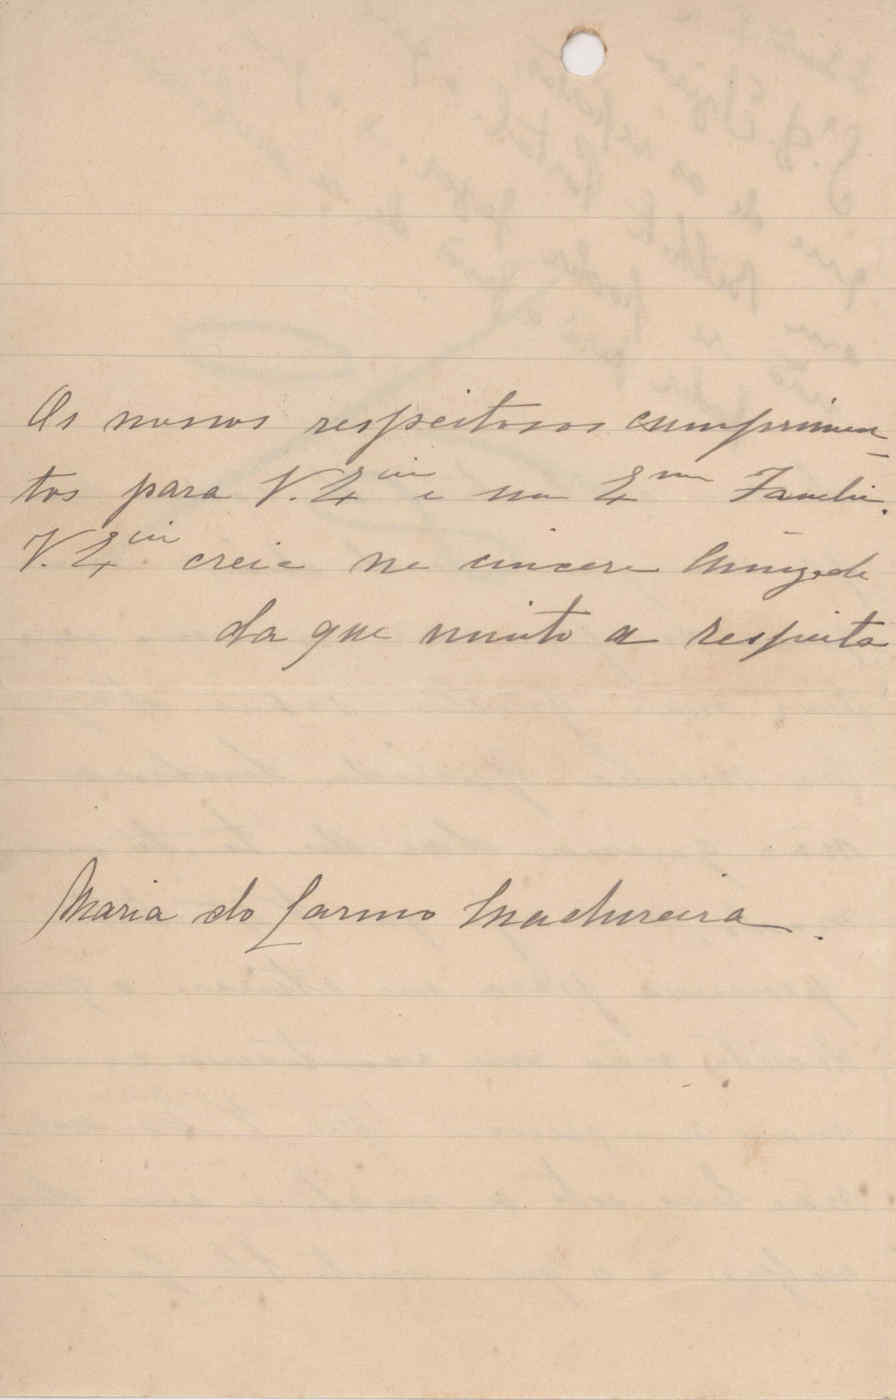 Os nossos respeitosos cumprimen-
tos para V. Excia e sua Exma Familia.
V. Excia creia na sincera amizade
da que muito a respeita
Maria do Carmo Madureira.